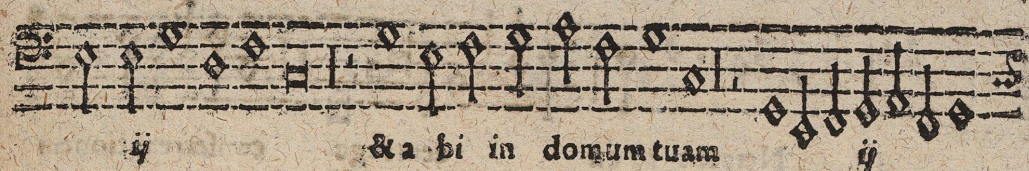 ij & a bi in domum tuam ij